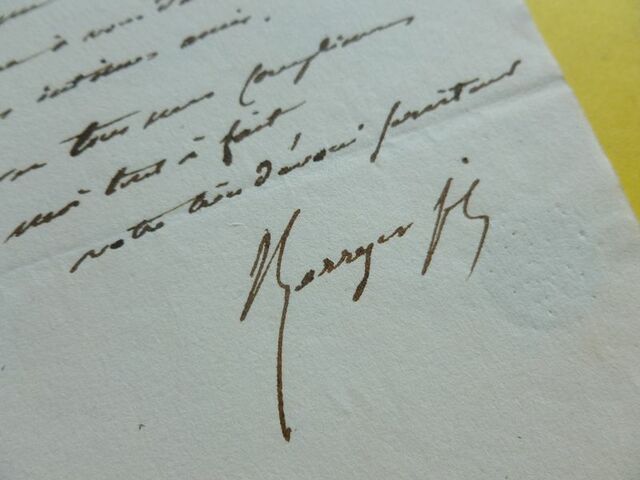 à vous d
intimes amis.
tous mes complimens
moi tout à fait
votre très dévoué serviteur
Berryer fils